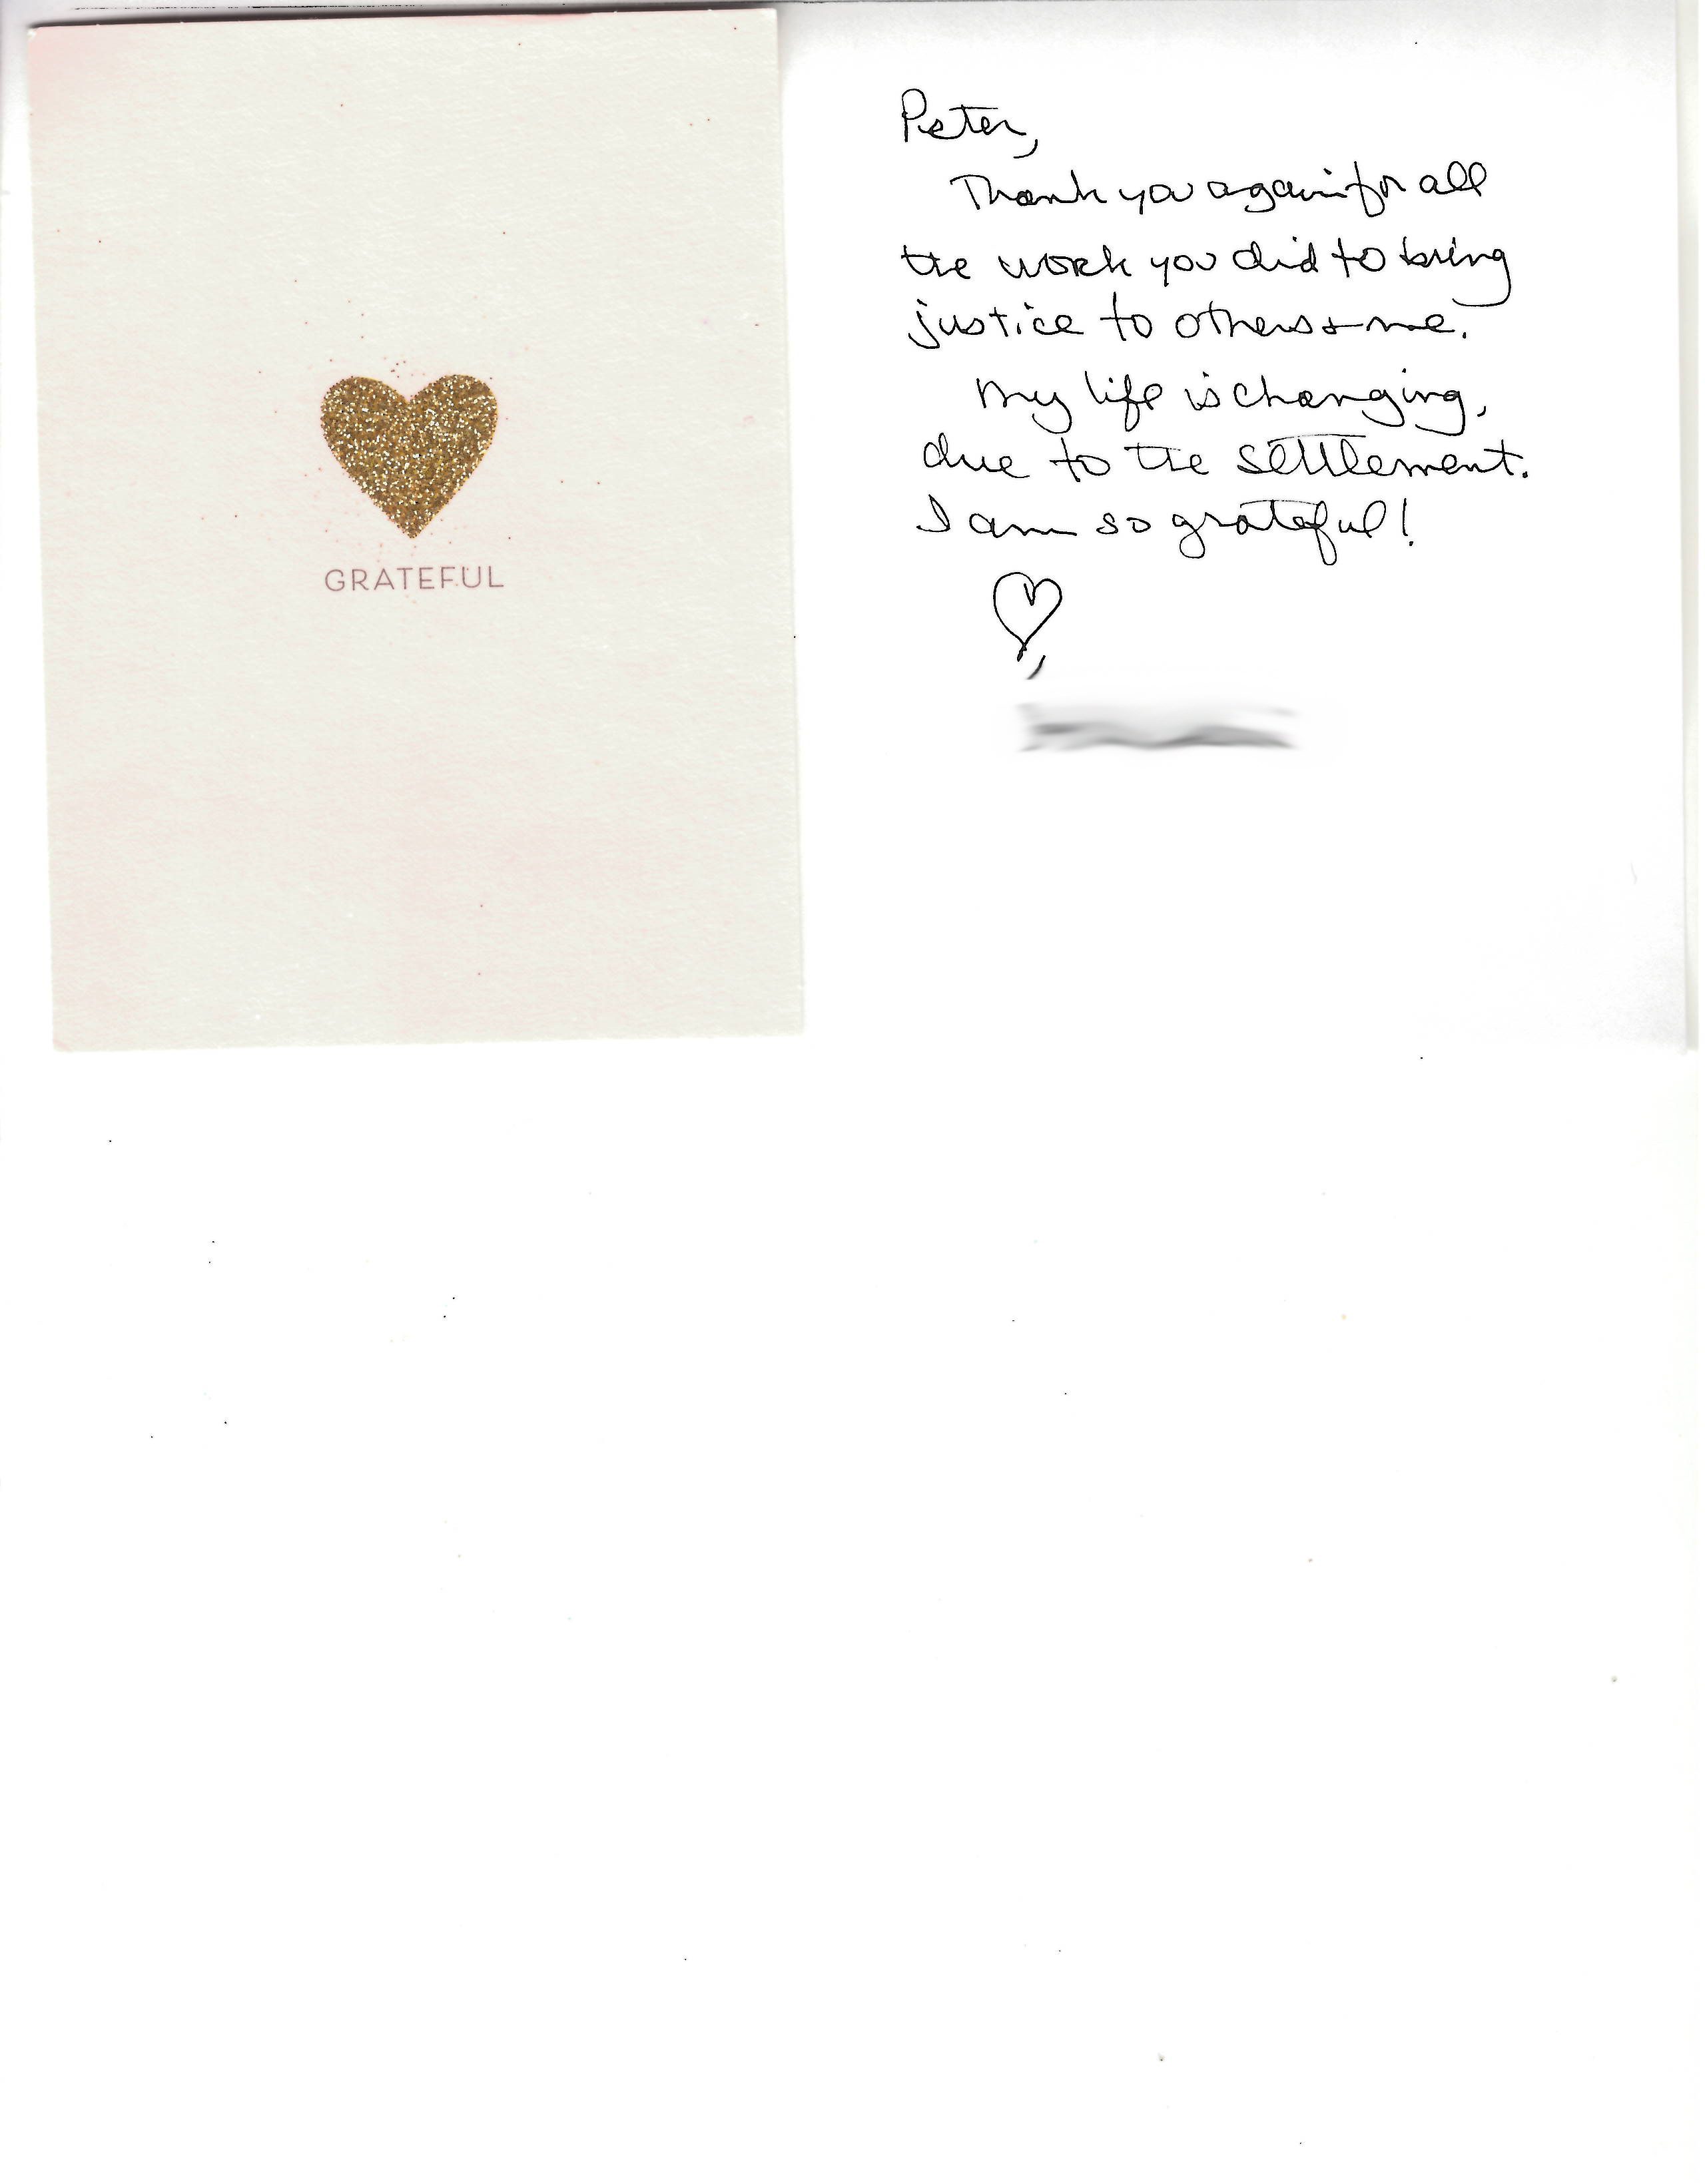 GRATEFUL
Peter,
Thank you again for all
the work you did to bring
justice to others + me.
My life is changing,
due to the settlement.
I am so grateful!